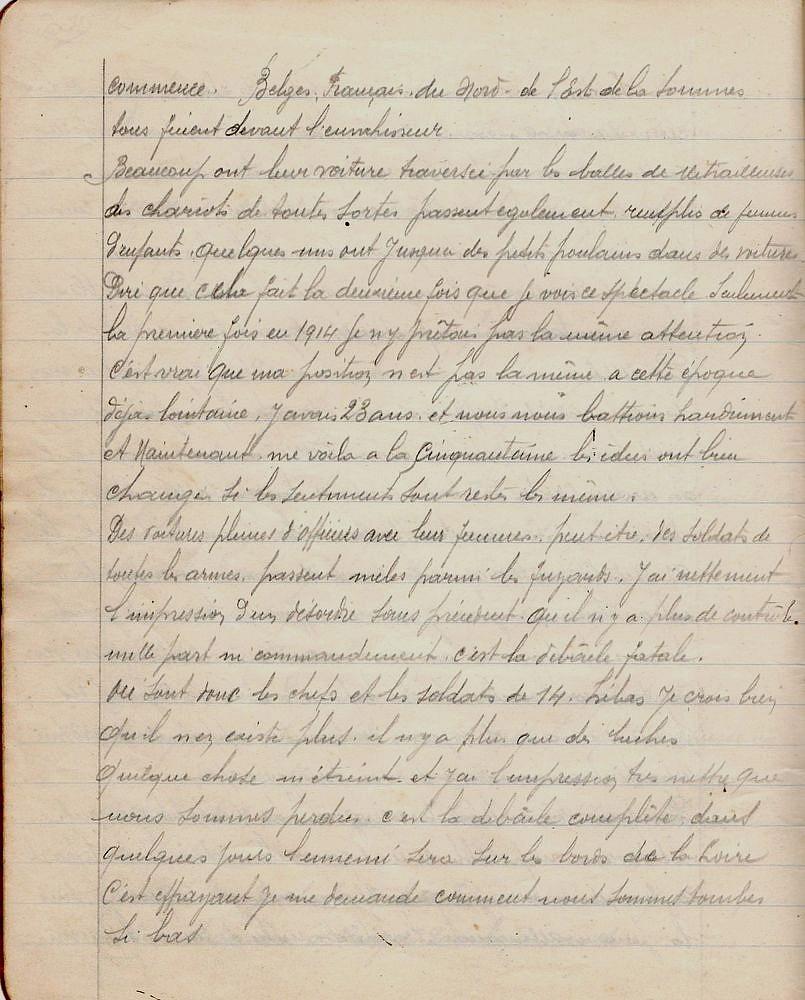 commence. Belges, Français, du Nord - de l'Est de la Sommes
tous fuient devant l'envahisseur
Beaucoup ont leur voiture traversée par les balles de Mitrailleuses
des chariots de toutes sortes passent egalement, remplis de femmes
d'enfants, quelques uns ont jusqua des petits poulains dans des voitures
Dire que cela fait la deuxième fois que je vois ce spectacle Seulement
la première fois en 1914 je n'y prêtais pas la même attention.
C'est vrai que ma position n'est pas la même, a cette époque
déja lointaine, J'avais 23 ans, et nous nous battions hardiment
et Maintenant, me voila a la Cinquantaine les idées ont bien
changé, si les sentiments sont restés les même.
Des voitures pleines d'officiers avec leur femmes, peut être, des soldats de
toutes les armes, passent mêles parmi les fuyards. J'ai nettement
l'impression d'un désordre sans précédent qu'il n'y a plus de contrôle
nulle part ni commandement, c'est la débâcle fatale.
Ou sont donc les chefs et les soldats de 14. hélas je crois bien
qu'il n'en existe plus, il n'y a plus que des
Quelque chose m'étreint et j'ai l'impression très nette que
nous sommes perdus, c'est la débâcle complète, dans
quelques jours l'ennemi sera sur les bords de la Loire
C'est effrayant je me demande comment nous sommes tombés
si bas